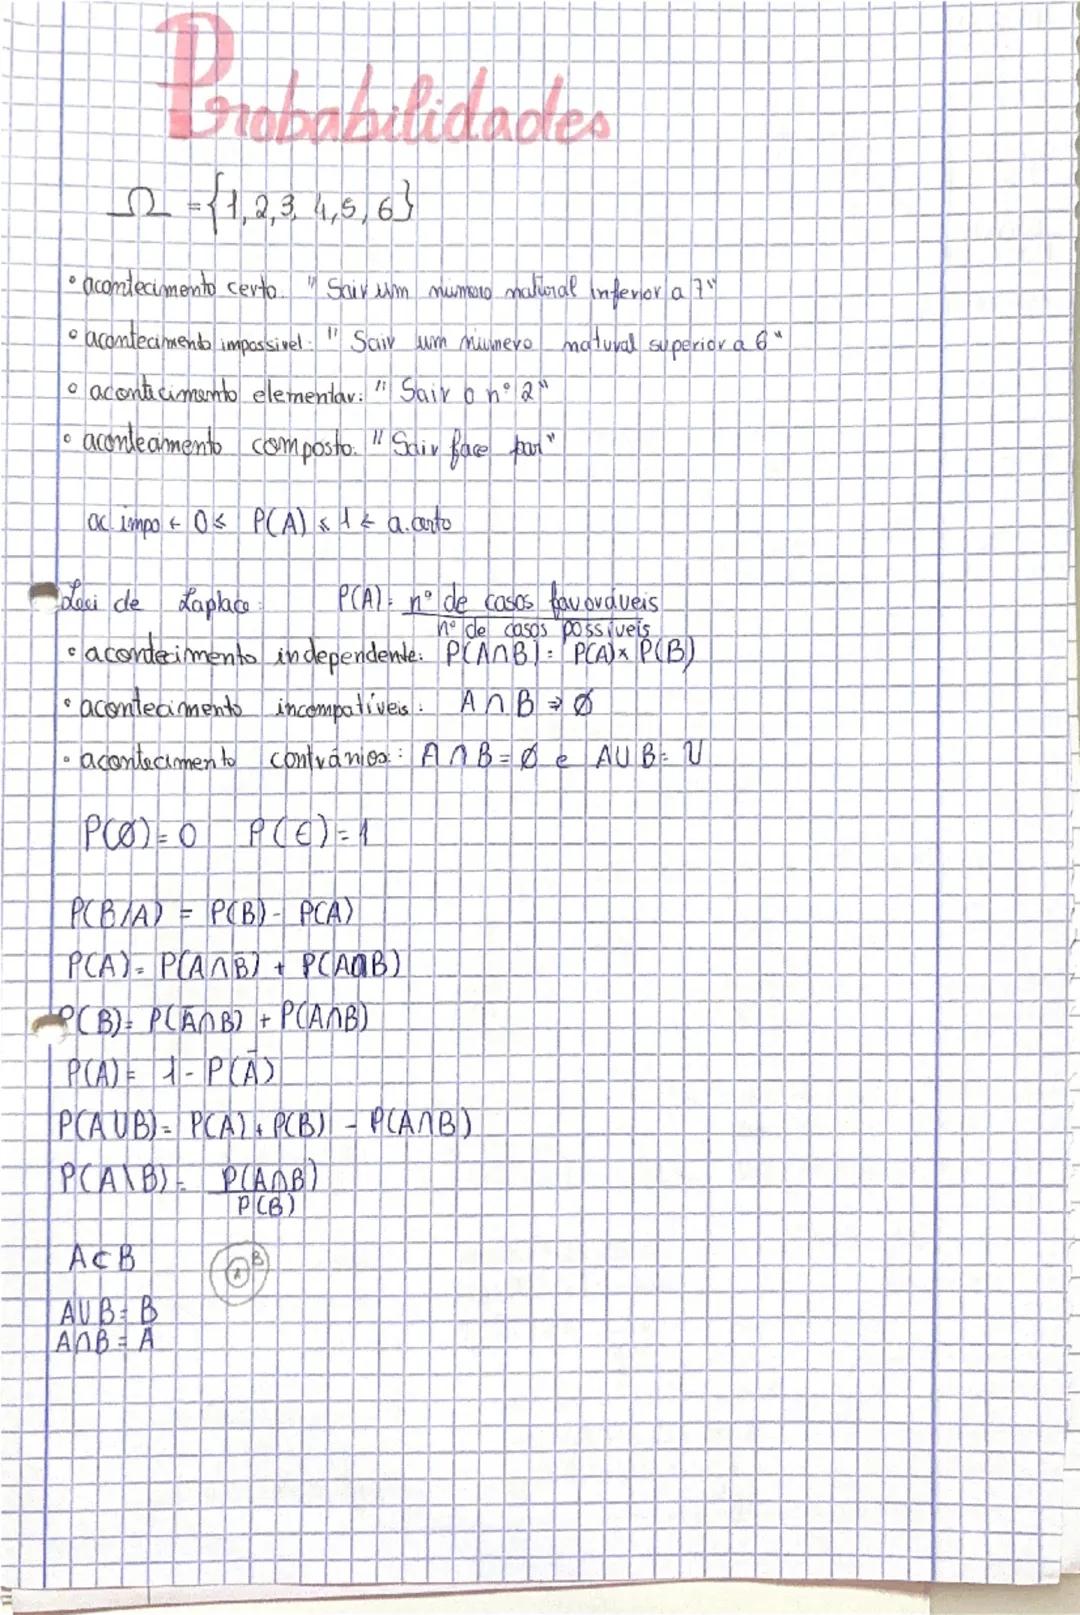 Probabilidades
Ω = {1, 2, 3, 4, 5, 6}
• acontecimento certo. "Sair um número natural inferior a 7"
• acontecimento impossivel: "Sair um número natural superior a 6"
• acontecimento elementar: "Sair o nº 2"
• acontecimento composto. "Sair face par"
ac. impo ← 0 ≤ P(A) ≤ 1 ← a. certo
Lei de Laplace: P(A) = nº de casos favoráveis
nº de casos possíveis
• acontecimento independente: P(A∩B) = P(A) × P(B)
• acontecimento incompatíveis: A ∩ B ⇒ Ø
• acontecimento contrários: A ∩ B = Ø e A∪B = U
P(Ø) = 0 P(E) = 1
P(B/A) = P(B) - P(A)
P(A) = P(A∩B) + P(A∩B)
P(B) = P(Ā∩B) + P(A∩B)
P(A) = 1 - P(Ā)
P(A∪B) = P(A) + P(B) - P(A∩B)
P(A\B) = P(A∩B)
P(B)
A⊂B A B
A∪B = B
A∩B = A